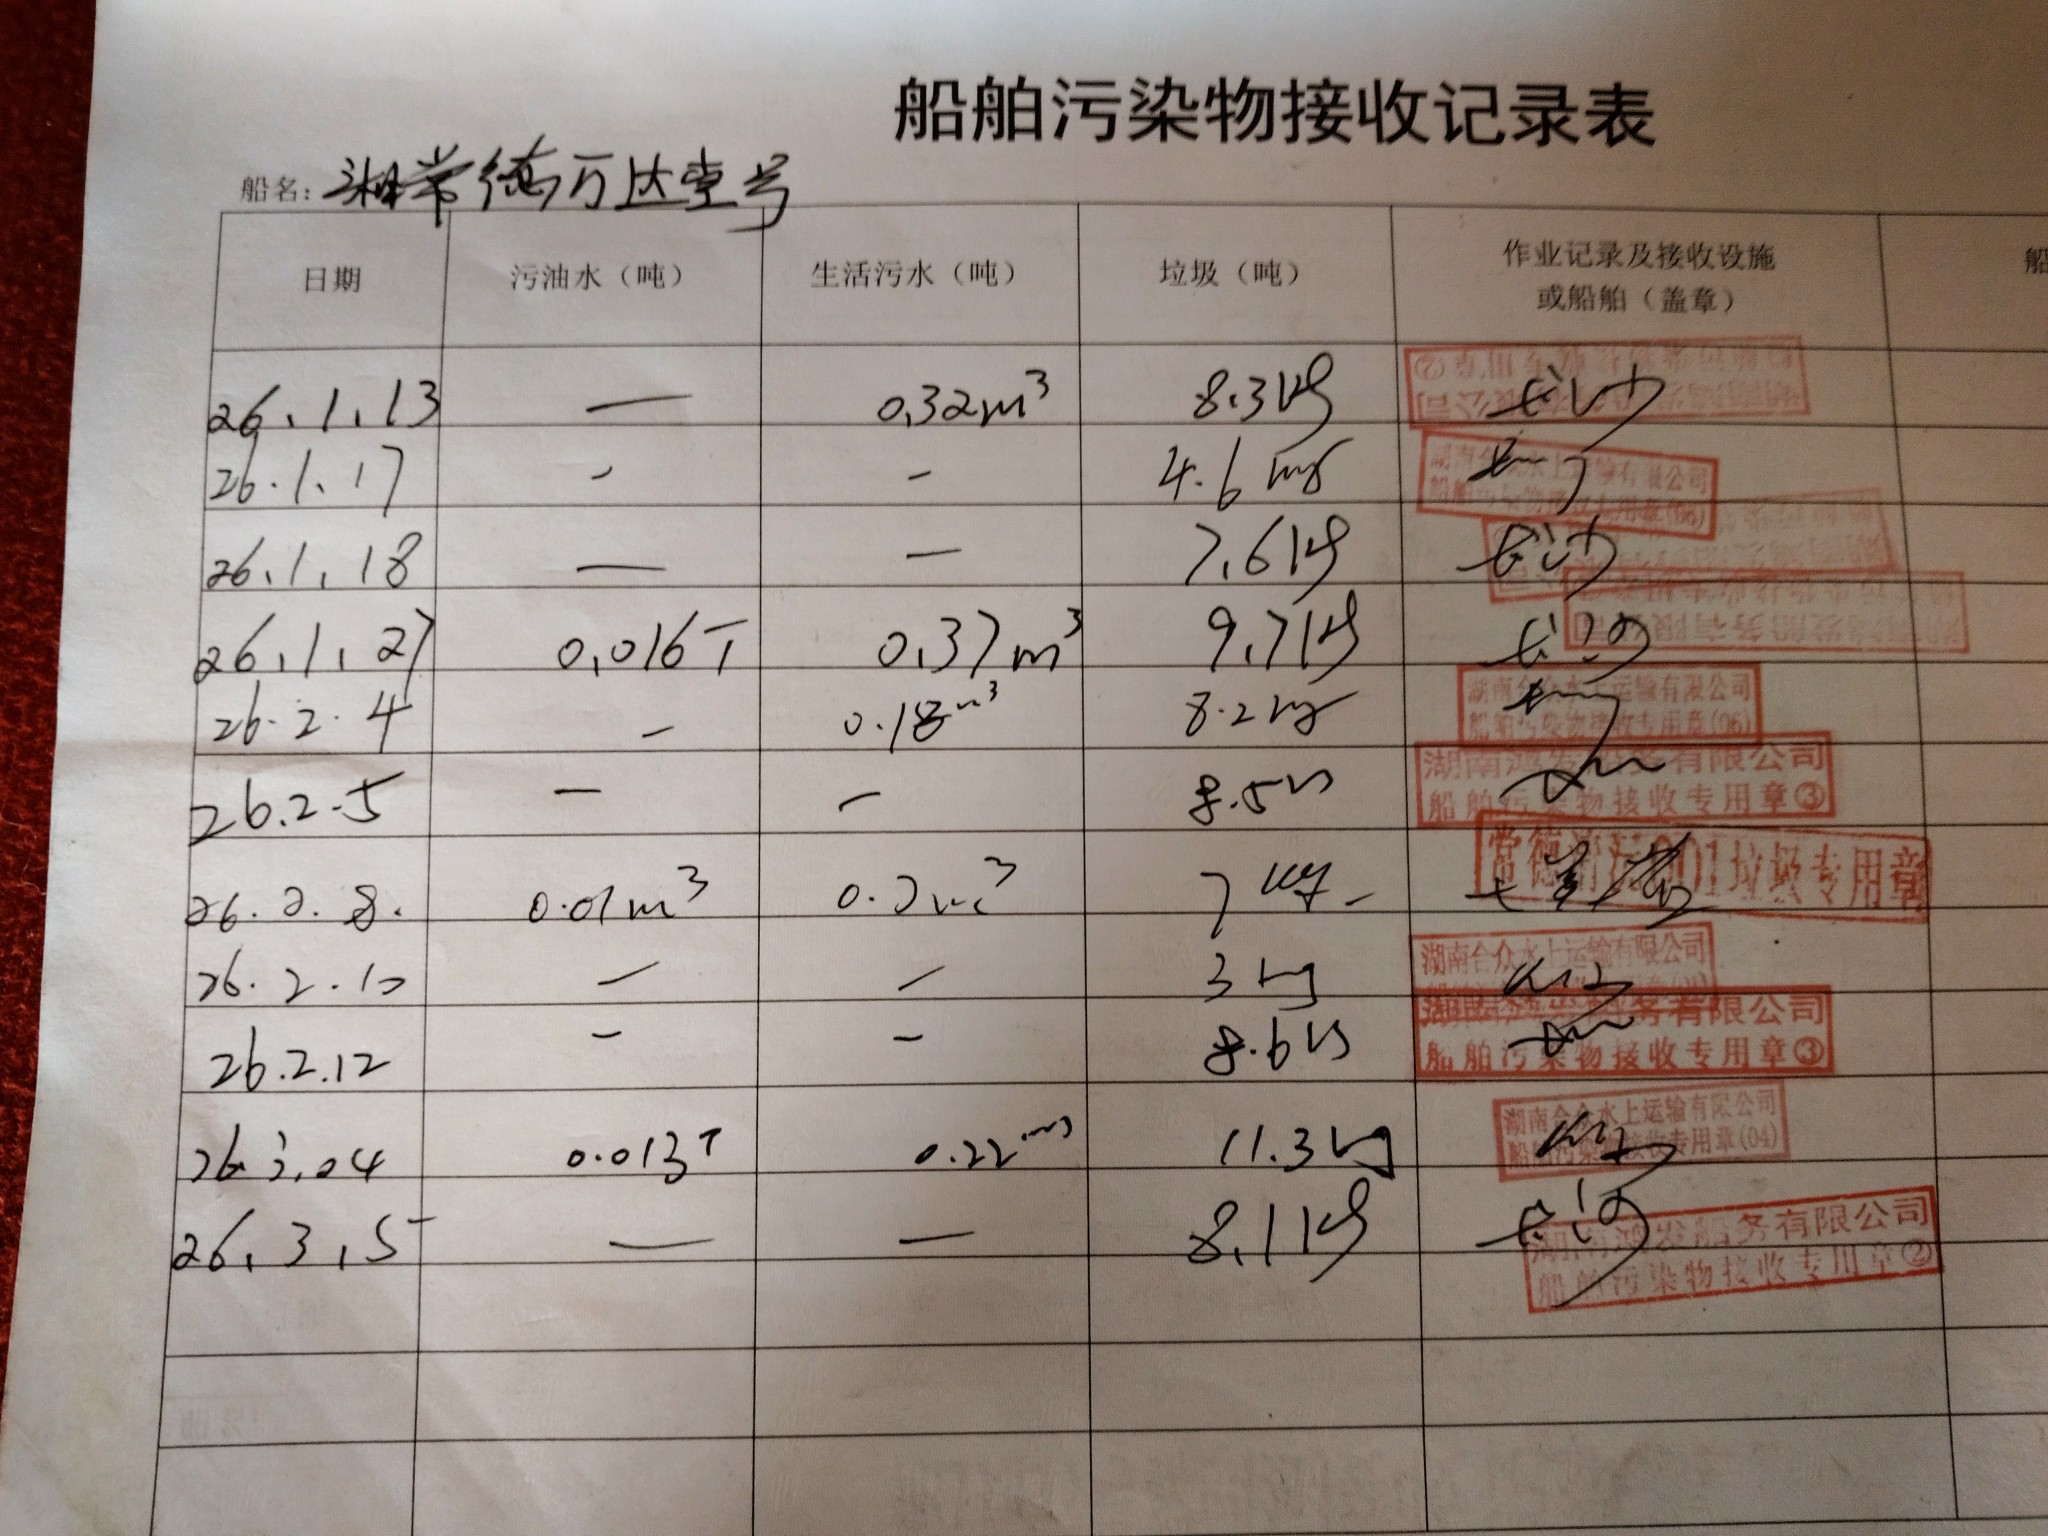 船舶污染物接收记录表
船名：湘常德万达壹号
日期 污油水（吨） 生活污水（吨） 垃圾（吨） 作业记录及接收设施 船
或船舶（盖章）
26.1.13 — 0.32m³ 8.3kg 长沙
船舶污染物接收专用章②
26.1.17 - - 4.6kg
湖南合众水上运输有限公司
船舶污染物接收专用章(06)
26.1.18 — — 7.6kg 长沙
26.1.27 0.016T 0.37m³ 9.7kg 长沙
湖南鸿发船务有限公司
26.2.4 - 0.18m³ 8.2kg
湖南合众水上运输有限公司
船舶污染物接收专用章(06)
26.2.5 - - 8.5kg
湖南鸿发船务有限公司
船舶污染物接收专用章③
26.2.8. 0.01m³ 7kg
26.2.10 - - 3kg
湖南合众水上运输有限公司
26.2.12 - - 8.6kg
湖南鸿发船务有限公司
船舶污染物接收专用章③
26.3.04 0.013T 0.22m³ 11.3kg
湖南合众水上运输有限公司
船舶污染物接收专用章(04)
26.3.5 — — 8.1kg 长沙
湖南鸿发船务有限公司
船舶污染物接收专用章②